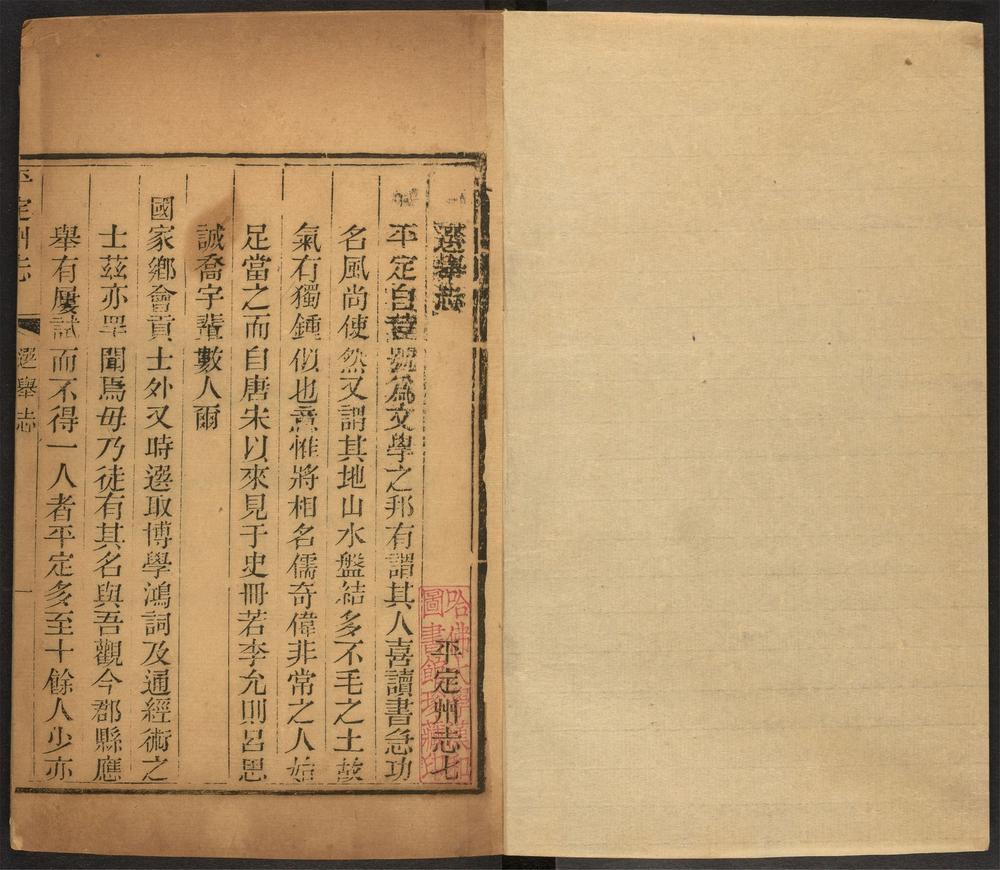 選舉志
平定州志七
平定自昔號爲文學之邦有謂其人喜讀書急功
名風尚使然又謂其地山水盤結多不毛之土故
氣有獨鍾似也意惟將相名儒奇偉非常之人始
足當之而自唐宋以來見于史冊若李允則呂思
誠喬宇輩數人爾
國家鄉會貢士外又時選取博學鴻詞及通經術之
士茲亦罕聞焉毋乃徒有其名與吾觀今郡縣應
舉有屢試而不得一人者平定多至十餘人少亦
平定州志
選舉志
一
哈佛大學漢和
圖書館珍藏印